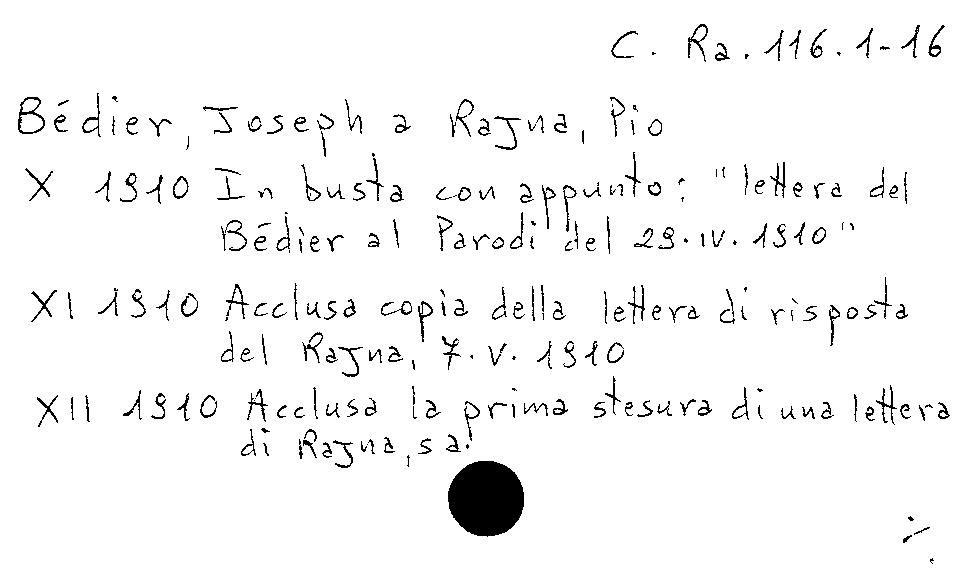 C. Ra. 116. 1-16
Bédier, Joseph a Rajna, Pio
X 1910 In busta con appunto: "lettera del
Bédier al Parodi del 29.IV.1910"
XI 1910 Acclusa copia della lettera di risposta
del Rajna, 7.V.1910
XII 1910 Acclusa la prima stesura di una lettera
di Rajna, s a.
./.